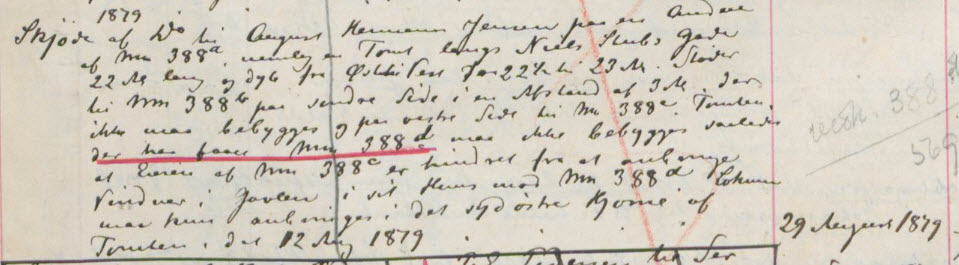 1879
Skjøde af Do til August Hermann Jensen paa en Anden
af Mn 388a, nemlig en Tomt langs Niels Juels Gade
22 Al lang og dyb fra Øst til Vest fra 22½ til 23 Al. Støder
til Mn 388b paa søndre Side i en Afstand af 3 Al, der
ikke maa bebygges og paa vestre Side til Mn 388c. Tomten,
der har faaet Mn 388d maa ikke bebygges saaledes
at Eieren af Mn 388c er hindret fra at anbringe
Vinduer i Gavlen i sit Huus mod Mn 388d Lokum
maa kun anbringes i det sydøstre Hjørne af
Tomten. dat 12 Aug 1879
29 August 1879
388
569
til Ser